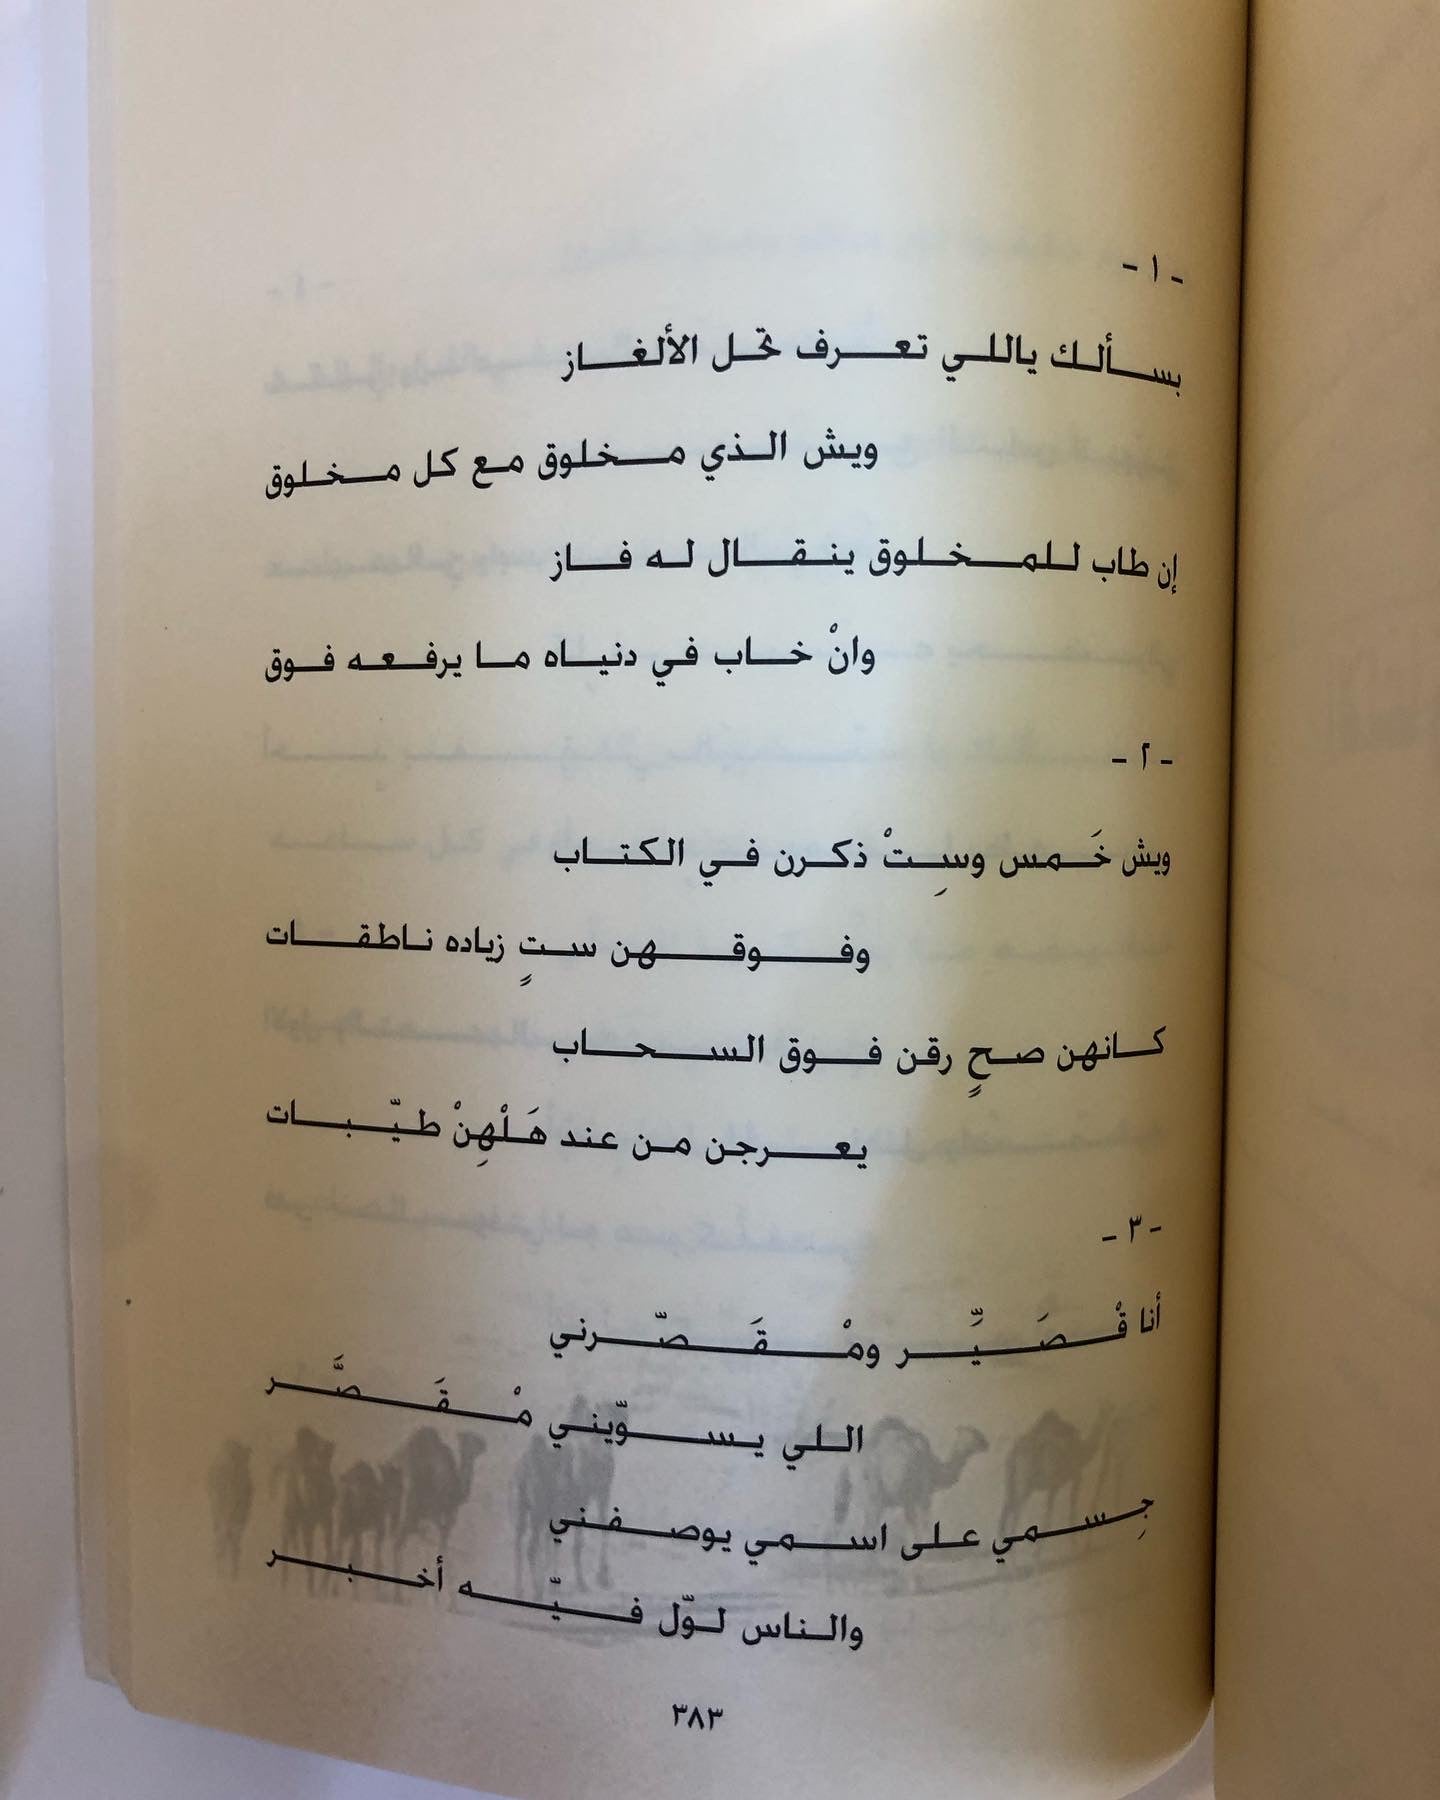 - ١ -
بسألك ياللي تعرف تحل الألغاز
ويش الذي مخلوق مع كل مخلوق
إن طاب للمخلوق ينقال له فاز
وانْ خاب في دنياه ما يرفعه فوق
- ٢ -
ويش خَمس وسِتْ ذكرن في الكتاب
وفوقهن ستٍ زياده ناطقات
كانهن صحٍ رقن فوق السحاب
يعرجن من عند هَلْهِنْ طيّبات
- ٣ -
أنا قْصَيِّر ومْقَصّرني
اللي يسوّيني مْقَصَّر
جِسمي على اسمي يوصفني
والناس لوّل فيّه أخبر
٣٨٣